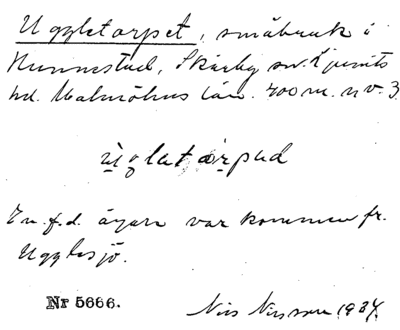 Uggletorpet, småbruk i
Hunnestad, Skårby sn. Ljunits
hd. Malmöhus län. 700 m. n v. 3.
ùglatòrpad
En f.d. ägare var kommen fr.
Ugglesjö.
Nr 5666.
Nils Nilsson 1934.